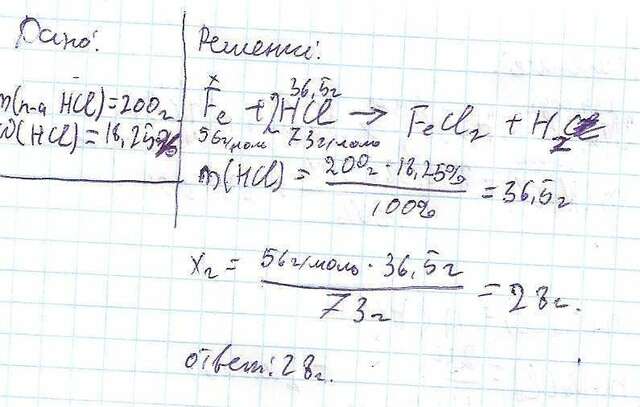 Дано:
m(р-ра HCl)=200г
W(HCl)=18,25%
Решение:
x 36,5г
Fe + 2HCl → FeCl2 + H2
56г/моль 73г/моль
m(HCl) = 200г · 18,25% / 100% = 36,5г
xг = 56г/моль · 36,5г / 73г = 28г.
ответ: 28г.